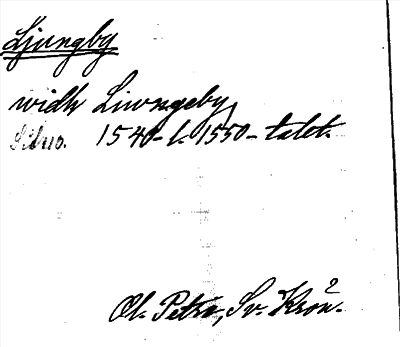 Ljungby
widh Liwngeby
1540- l. 1550-talet.
Ol. Petro, Sv. Krön.²